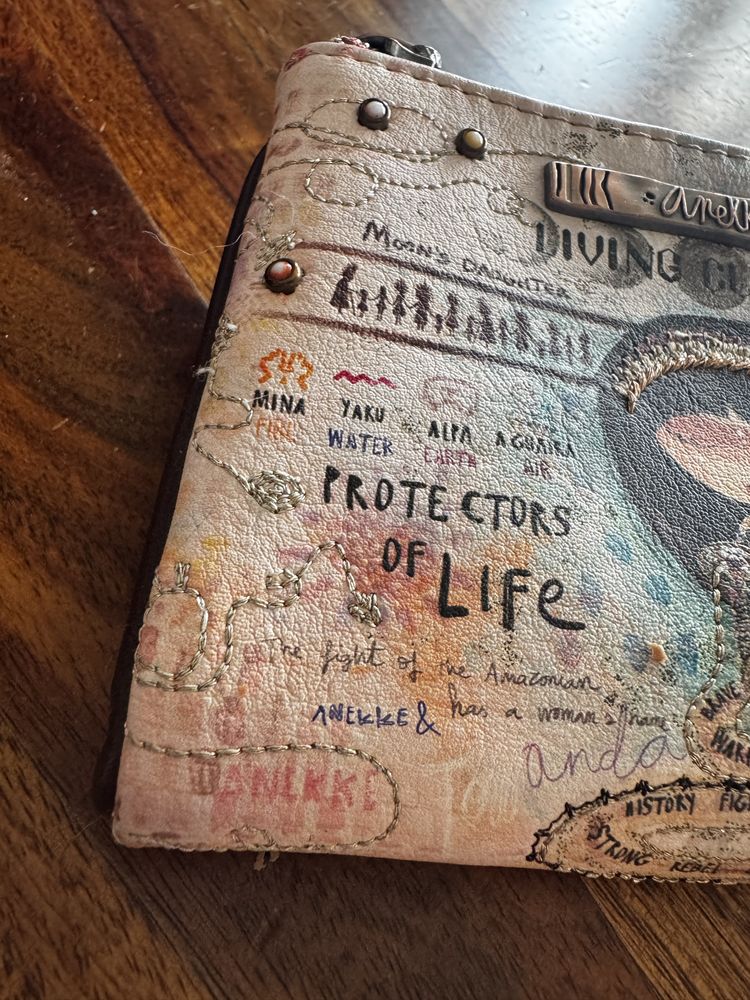 anekk
LIVING CU
MOON'S DAUGHTER
MINA YAKU ALPA AGUAIRA
FIRE WATER EARTH AIR
PROTECTORS
OF LIFE
The fight of the Amazonian
has a woman's name
ANEKKE &
anda
ANEKKE
BRAVE
HISTORY FIG
STRONG
REBEL